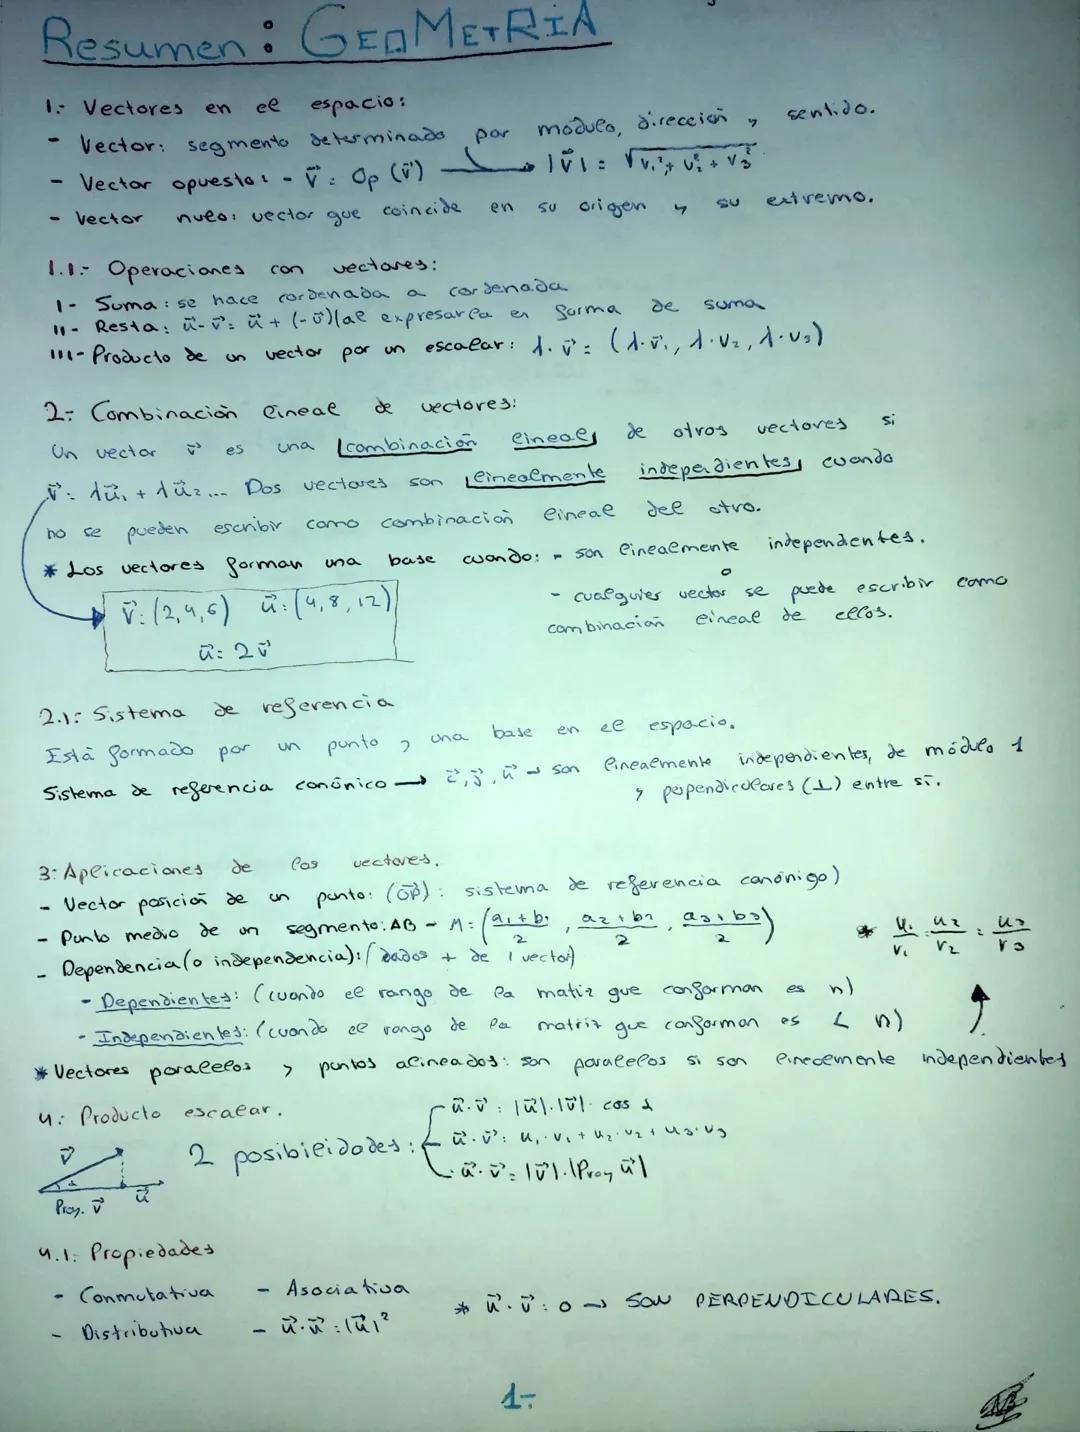 Resumen: GEOMETRIA
1.- Vectores en el espacio:
- Vector: segmento determinado por modulo, dirección y sentido.
- Vector opuesto: - v⃗ = Op (v⃗) → |v⃗| = √v₁² + v₂² + v₃²
- Vector nulo: vector que coincide en su origen y su extremo.
1.1.- Operaciones con vectores:
I- Suma: se hace cordenada a cordenada
II- Resta: u⃗-v⃗ = u⃗ + (-v⃗) (al expresarla en forma de suma
III- Producto de un vector por un escalar: λ·v⃗ = (λ·v⃗₁, λ·v₂, λ·v₃)
2.- Combinación lineal de vectores:
Un vector v⃗ es una combinación lineal de otros vectores si
v⃗ = λu⃗₁ + λu⃗₂... Dos vectores son linealmente independientes cuando
no se pueden escribir como combinación lineal del otro.
* Los vectores forman una base cuando: - son linealmente independentes.
- cualquier vector se puede escribir como
combinación lineal de ellos.
v⃗: (2,4,6) u⃗: (4,8,12)
u⃗ = 2v⃗
2.1: Sistema de referencia
Está formado por un punto y una base en el espacio.
Sistema de referencia canónico → i⃗, j⃗, k⃗ → son linealmente independientes, de módulo 1
y perpendiculares (⊥) entre sí.
3: Aplicaciones de los vectores.
- Vector posición de un punto: (OP⃗): sistema de referencia canónigo)
- Punto medio de un segmento: AB - M = (a₁+b₁/2, a₂+b₂/2, a₃+b₃/2)
* u₁/v₁ = u₂/v₂ = u₃/v₃
- Dependencia (o independencia): (dados + de 1 vector)
- Dependientes: (cuando el rango de la matiz que conforman es n)
- Independientes: (cuando el rango de la matriz que conforman es < n)
* Vectores paralelos y puntos alineados: son paralelos si son linealmente independientes
4: Producto escalar.
2 posibilidades:
u⃗·v⃗ = |u⃗|·|v⃗|· cos α
u⃗·v⃗ = u₁·v₁ + u₂·v₂ + u₃·v₃
u⃗·v⃗ = |v⃗|·|Proy u⃗|
v⃗
α
u⃗
Proy. v⃗
4.1: Propiedades
- Conmutativa - Asociativa
* u⃗·v⃗ = 0 → SON PERPENDICULARES.
- Distributiva - u⃗·u⃗ = |u⃗|²
1-